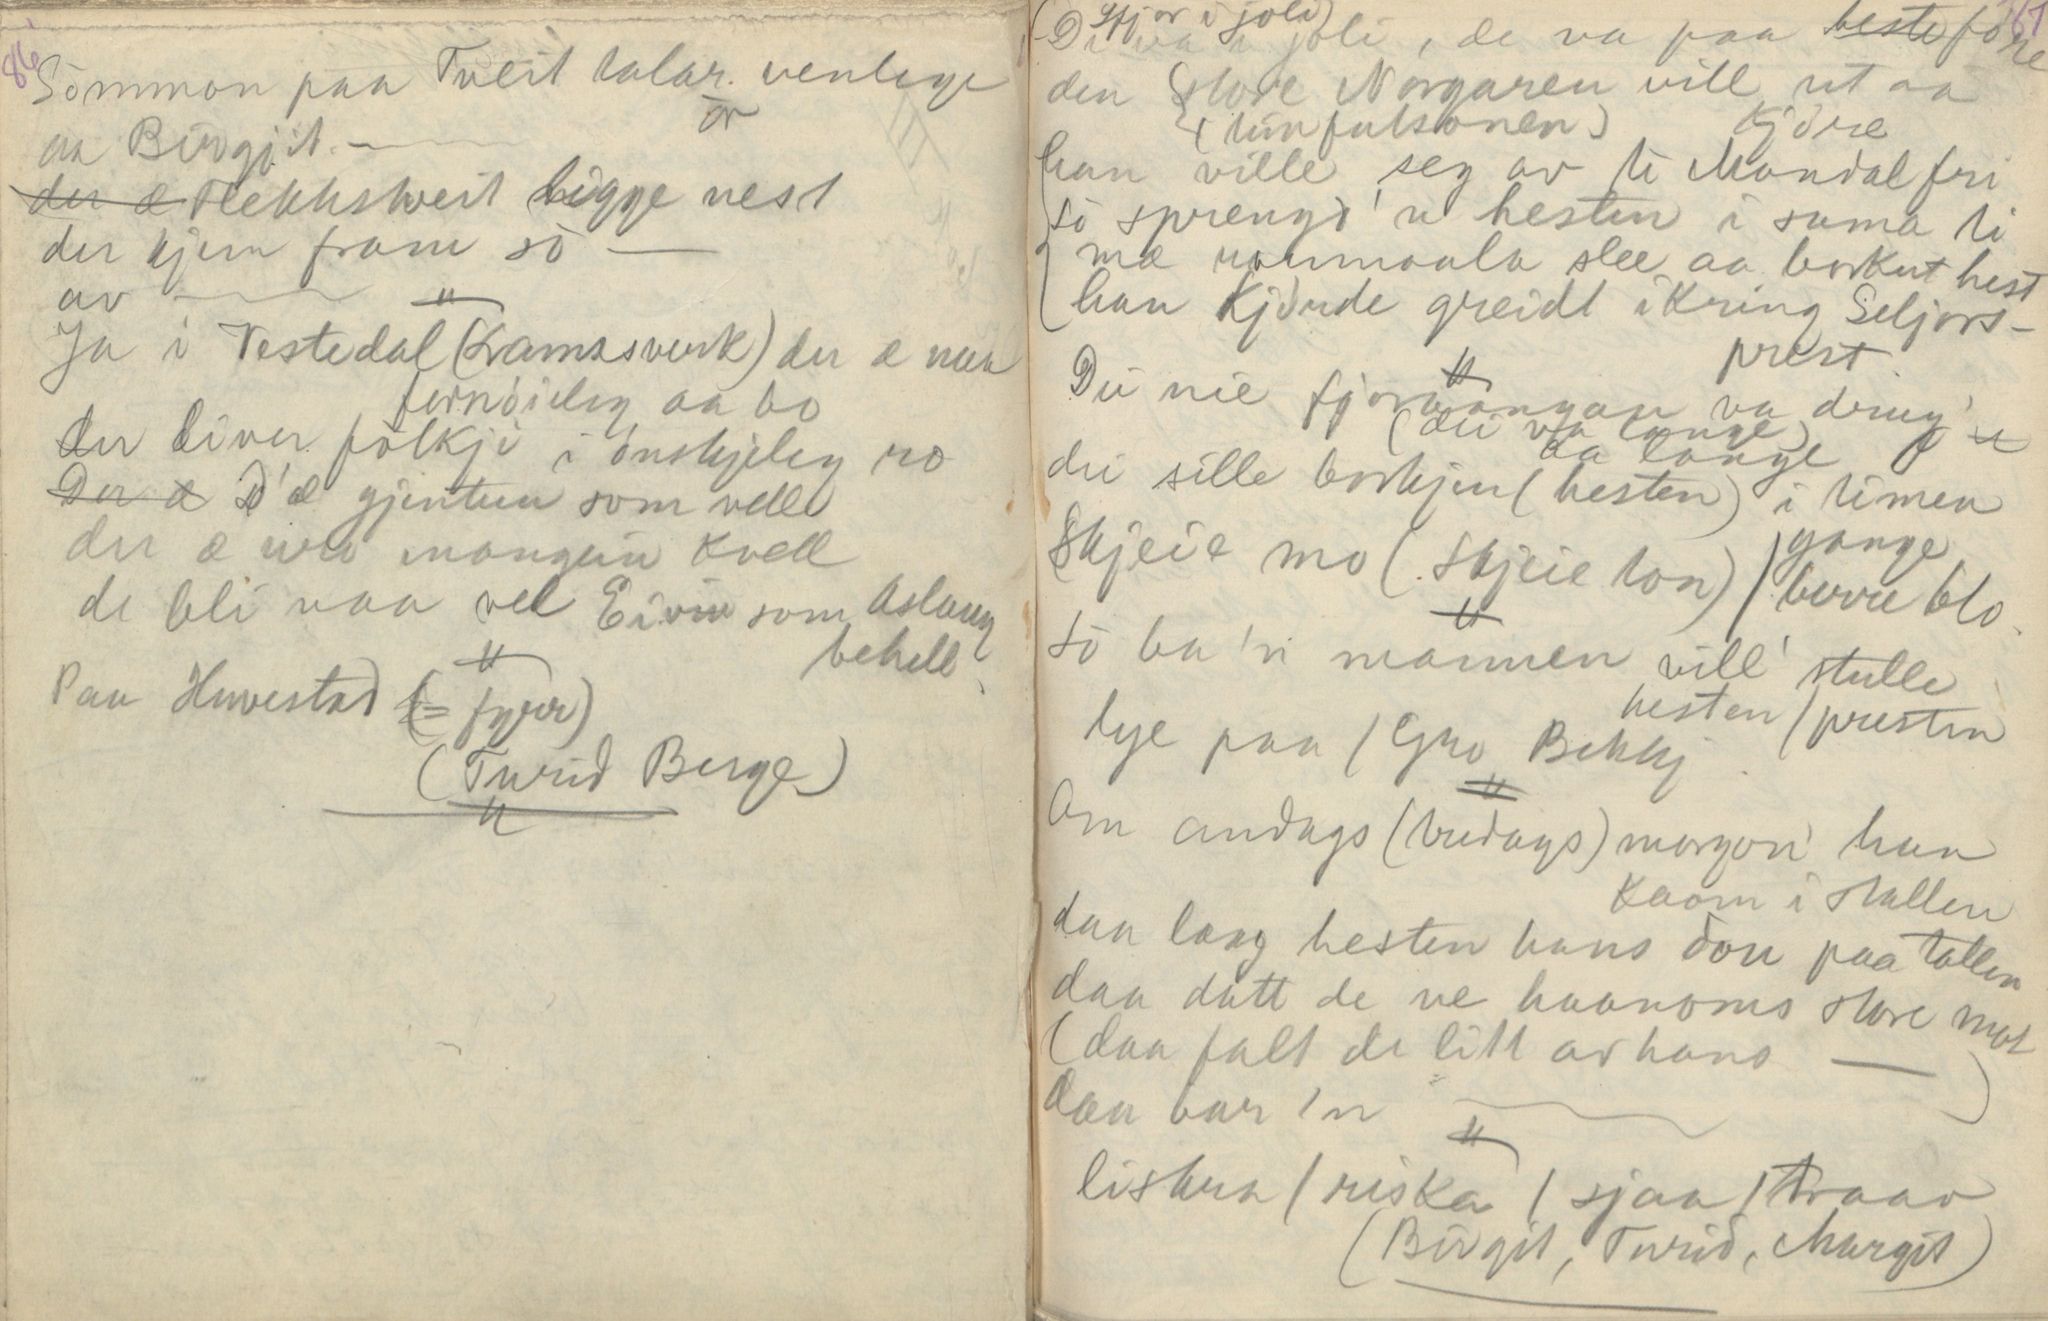 86
Sommon paa Tveit talar venlege
ær
aa Birgjit. —
der æ Flekkstveit ligge nest
der kjem fram so —
av
Ja i Vestedal (Kramssverk) der æ naa
fornöieleg aa bo
der liver folkji i önskjeleg ro
Der æ D'æ gjentun som vell
der æ mangein kvell
de bli naa vel Eivin som Aslaug
behell
Paa Huvestad (= fyrr)
(Turid Berge)
67
(ifjor i joli)
De va i joli, de va paa beste före
den store Norgaren vill ut aa
(tunfutsonen) kjöre
han ville seg av ti Mandal fri
so sprengd' n hesten i sama ti
mæ raumaala slee aa borkut hest
han kjörde greidt ikring Seljors-
prest.
Dei nie fjoraangan va dryg'
(dei va lange) aa lange
dei sille borkjen (hesten) i timen
gange
Skjeie mo (Skjeie ton) / berre blo.
So ba 'n mannen vill' stelle
hesten / presten
tye paa / Gro Bekkj
Om andags (tredags) morgon han
kaam i stallen
daa laag hesten hans dou paa tallen
daa datt de ve haanoms store mot
(daa falt de litt av hans — )
daa bar 'n
listra / riska / sjaa / traav
(Birgit, Turid, Margit)